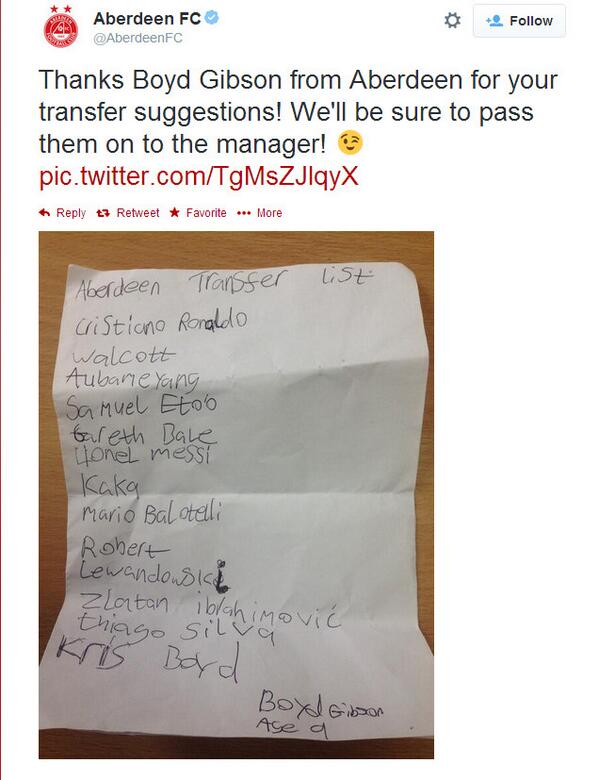 Aberdeen FC
@AberdeenFC
Follow
Thanks Boyd Gibson from Aberdeen for your
transfer suggestions! We'll be sure to pass
them on to the manager! 😉
pic.twitter.com/TgMsZJIqyX
Reply Retweet Favorite More
Aberdeen Transfer list
Cristiano Ronaldo
Walcott
Aubameyang
Samuel Eto'o
Gareth Bale
Lionel messi
Kaka
Mario Balotelli
Robert
Lewandowski
Zlatan ibrahimović
thiago Silva
Kris Boyd
Boyd Gibson
Age 9